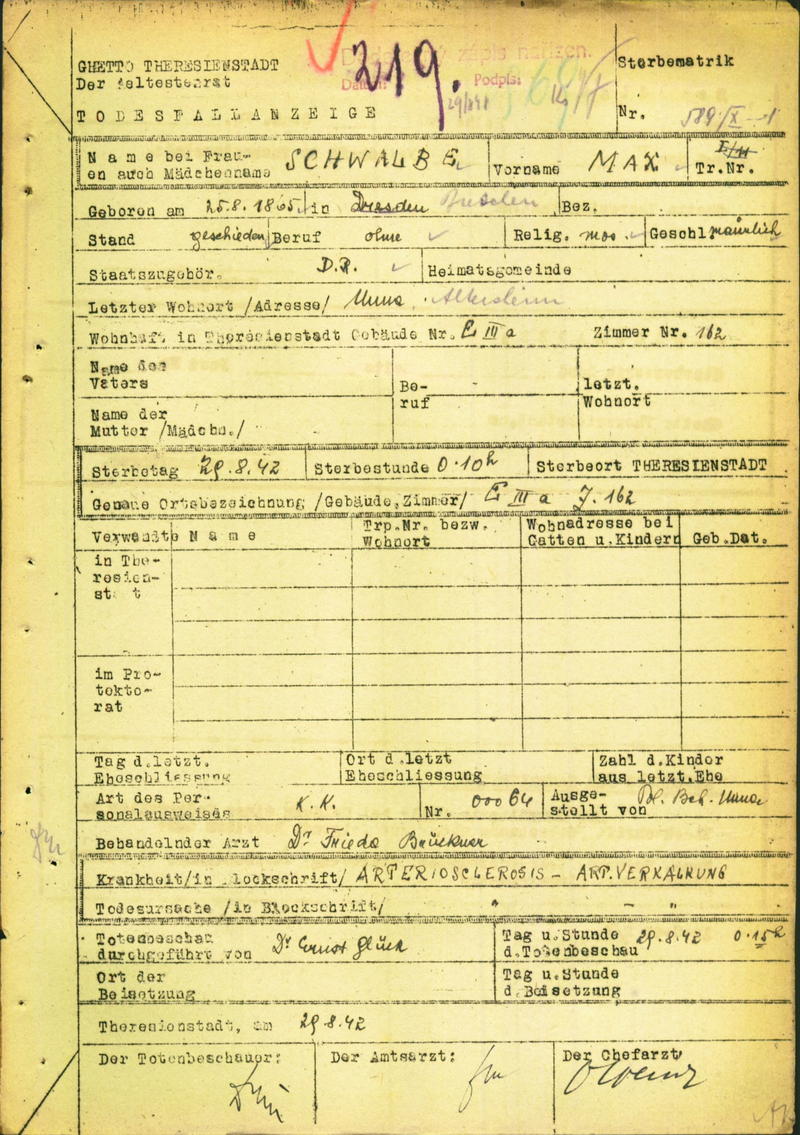 219.
GHETTO THERESIENSTADT
Der Aeltestenrat
Podpis:
Sterbematrik
TODESFALLANZEIGE
Nr.
Name bei Frau-
en auch Mädchenname SCHWALBE Vorname MAX Tr.Nr.
Geboren am 25.8.1865 in Dresden Breschen Bez.
Stand geschieden Beruf ohne Relig. mos. Geschl männlich
Staatszugehör. D.R. Heimatsgemeinde
Letzter Wohnort /Adresse/ Unna Altersheim
Wohnhaft in Theresienstadt Gebäude Nr. E III a Zimmer Nr. 162
Name des
Vaters Be-
ruf letzt.
Wohnort
Name der
Mutter /Mädchn./
Sterbetag 29.8.42 Sterbestunde 0.10h Sterbeort THERESIENSTADT
Genaue Ortsbezeichnung /Gebäude, Zimmer/ E III a Z. 162
Verwandte Name Trp.Nr. bezw.
Wohnort Wohnadresse bei
Gatten u.Kindern Geb.Dat.
in The-
resien-
st t
im Pro-
tekto-
rat
Tag d.letzt.
Eheschliessung Ort d.letzt
Eheschliessung Zahl d.Kinder
aus letzt.Ehe
Art des Per-
sonalausweises K.K. Nr. 00064 Ausge-
stellt von Pol. Beh. Unna
Behandelnder Arzt Dr Frieda Brückner
Krankheit/in lockschrift/ ARTERIOSCLEROSIS - ART.VERKALKUNG
Todesursache /in Blockschrift/ " - "
Totenbeschau
durchgeführt von Dr Ernst Glück Tag u.Stunde
d.Totenbeschau 29.8.42 0.15h
Ort der
Beisetzung Tag u.Stunde
d.Beisetzung
Theresienstadt, am 29.8.42
Der Totenbeschauer: Der Amtsarzt: Der Chefarzt: